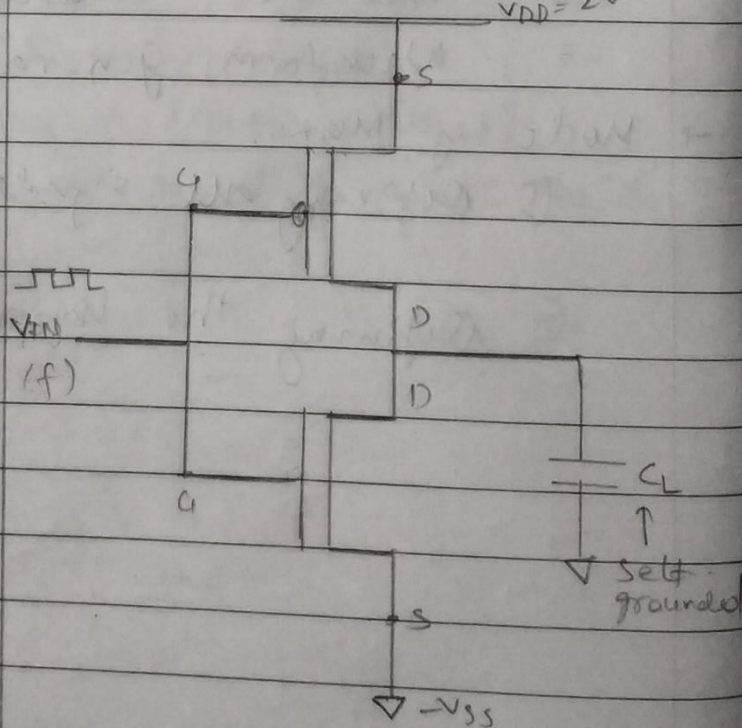 VDD = 2
S
G
VIN
(f)
D
D
G
CL
↑
Self
grounded
S
-VSS